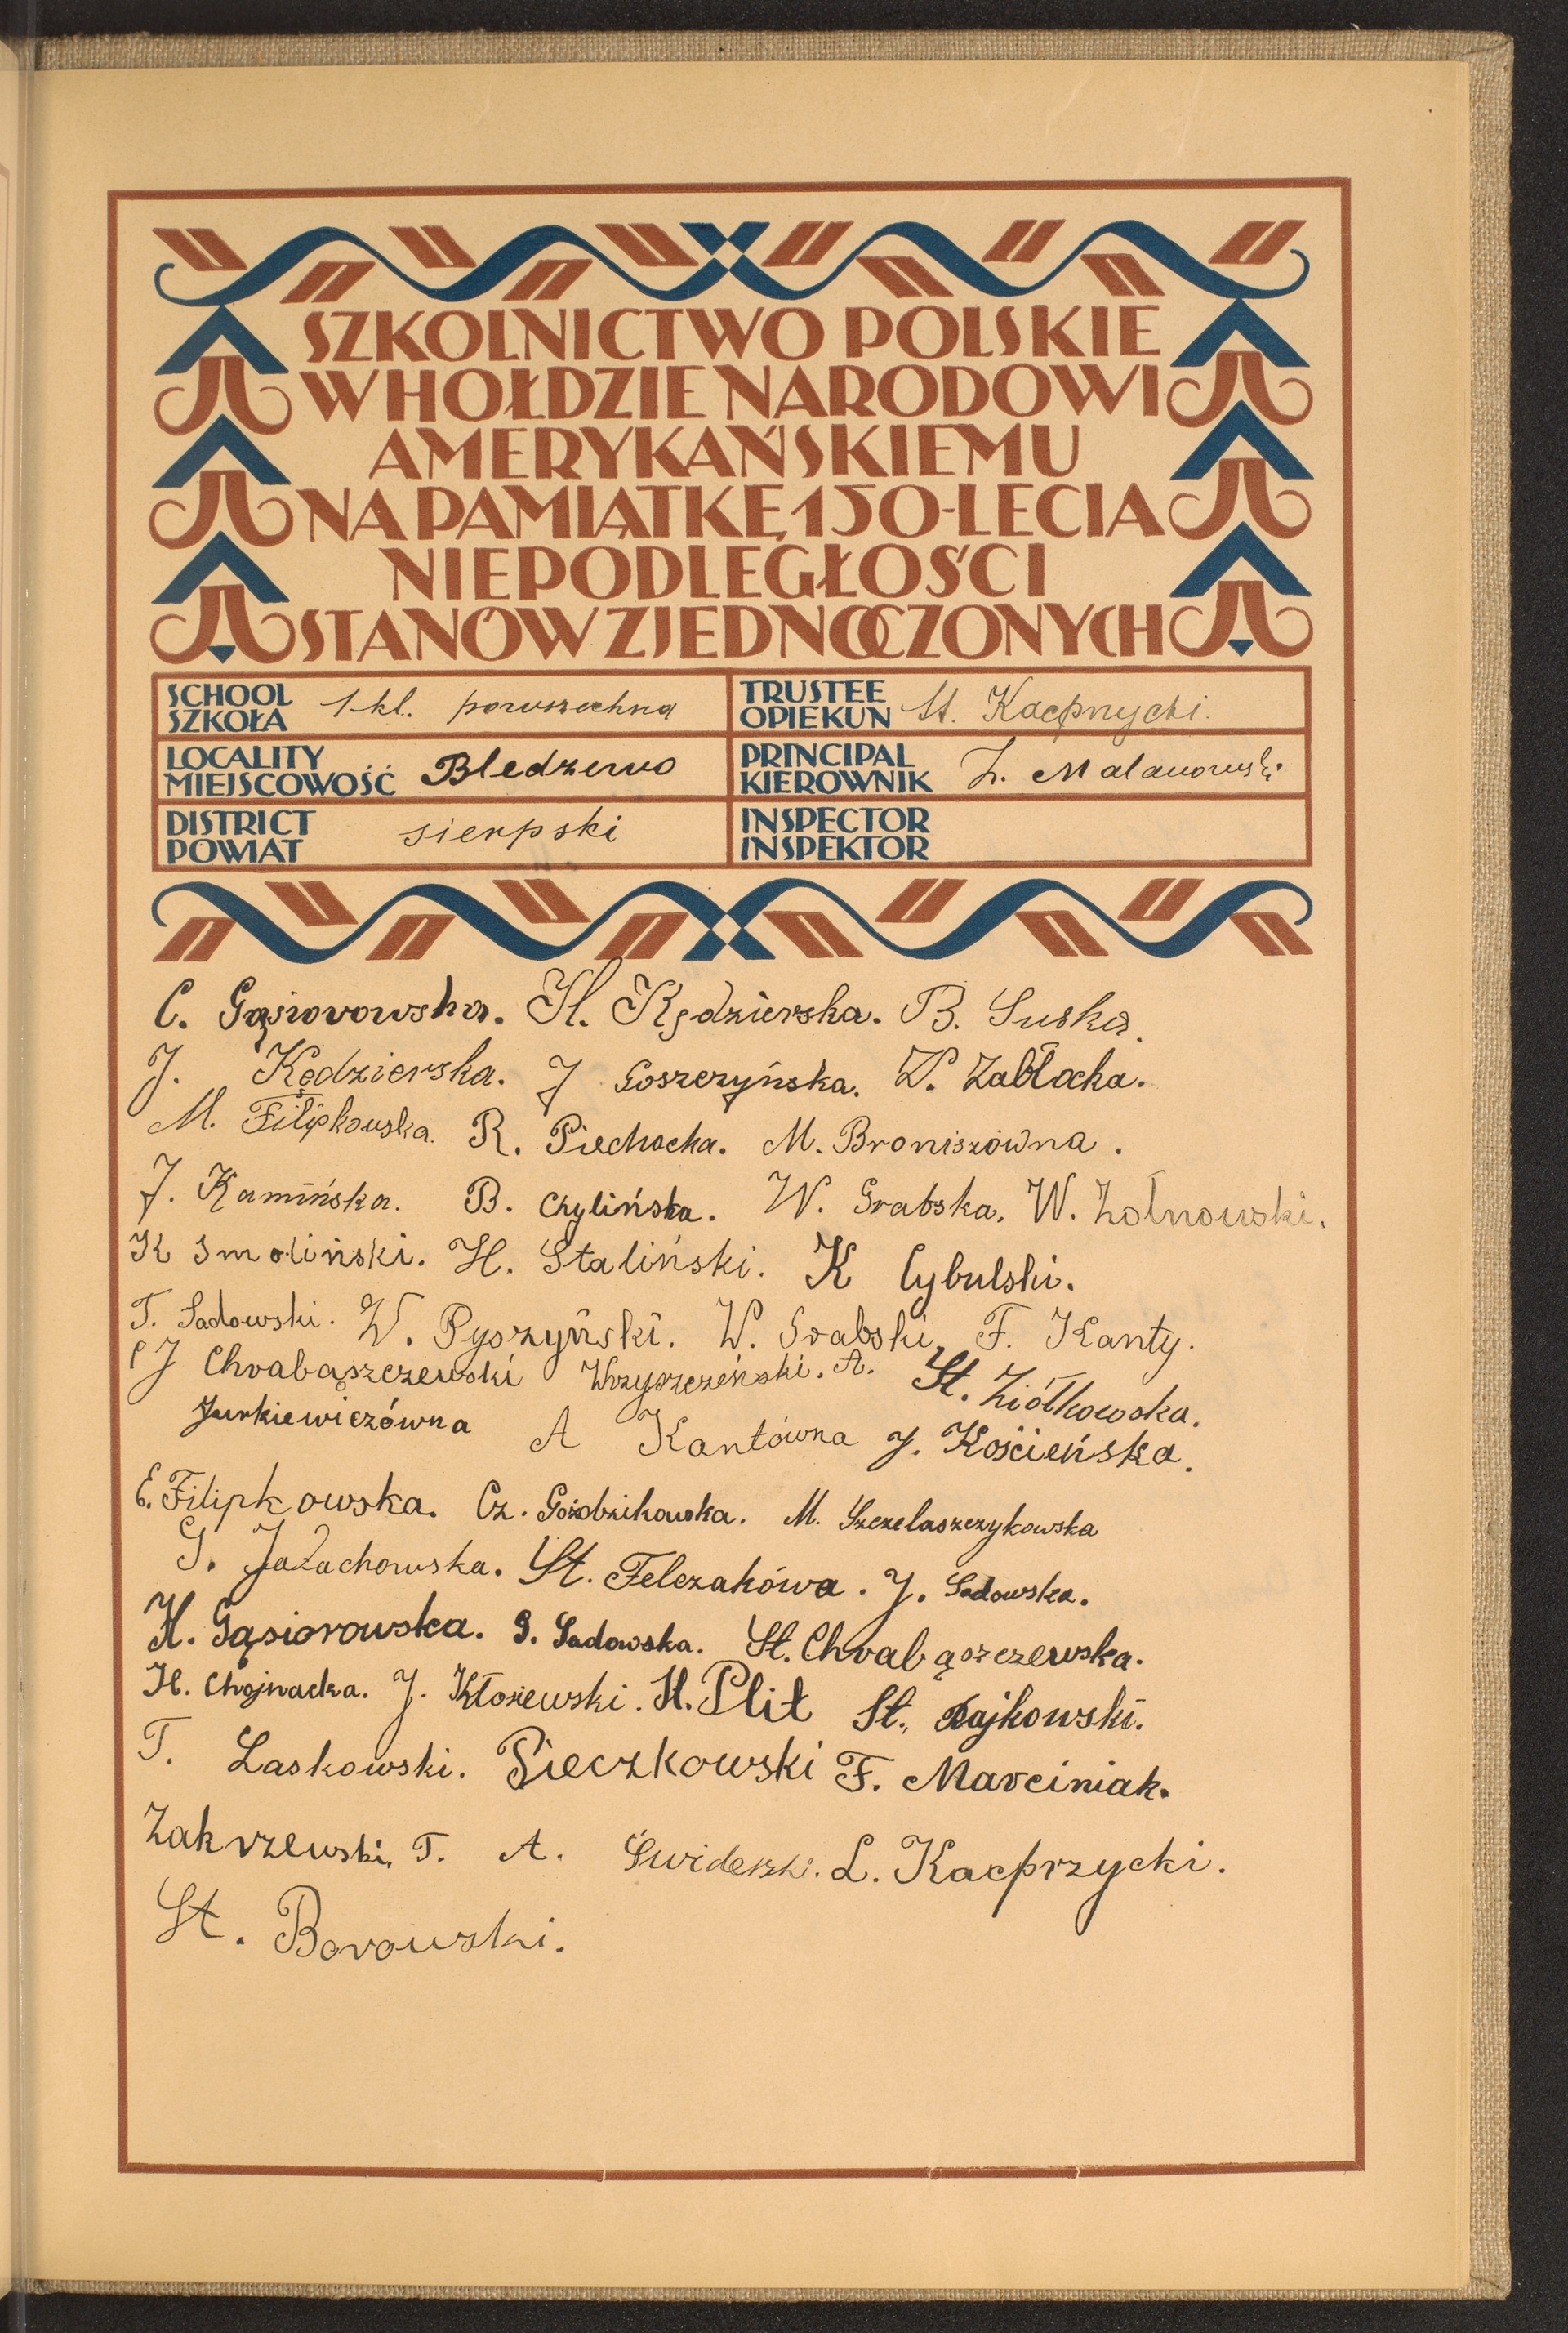 SZKOLNICTWO POLSKIE
W HOŁDZIE NARODOWI
AMERYKAŃSKIEMU
NA PAMIĄTKĘ 150-LECIA
NIEPODLEGŁOŚCI
STANÓW ZJEDNOCZONYCH
SCHOOL
SZKOŁA 1-kl. powszechna
TRUSTEE
OPIEKUN St. Kacprzycki.
LOCALITY
MIEJSCOWOŚĆ Bledzewo
PRINCIPAL
KIEROWNIK Z. Malanowski
DISTRICT
POWIAT sierpski
INSPECTOR
INSPEKTOR
C. Gąsiorowska. H. Kędzierska. B. Suska.
J. Kędzierska. J Goszczyńska. W. Zabłocka.
M. Filipkowska. R. Piechocka. M. Broniszówna.
J. Kamińska. B. Chylińska. W. Grabska. W. Żółnowski.
K Smoliński. H. Staliński. K Cybulski.
T. Sadowski. W. Pyszyński. W. Grabski, F. Kanty.
J Chrabąszczewski Wrzyszczeński. A. St. Ziółkowska.
Jurkiewiczówna A Kantówna J. Kościeńska.
E. Filipkowska. Cz. Goździkowska. M. Szczelaszczykowska
G. Jazachowska. St. Felczakówa. J. Sadowska.
H. Gąsiorowska. G. Sadowska. St. Chrabąszczewska.
H. Chojnacka. J. Kłosiewski. H. Plit St. Rajkowski.
T. Laskowski. Pieczkowski F. Marciniak.
Zakrzewski, T. A. Świderski. L. Kacprzycki.
St. Borowski.